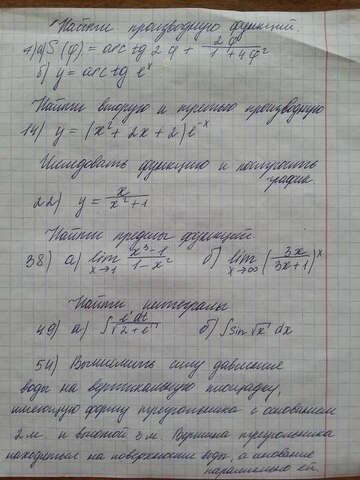 Найти производную функций.
1) а) S(φ) = arc tg 2φ + 2φ / 1 + 4φ²
б) y = arc tg eˣ
Найти вторую и третью производную
14) y = (x² + 2x + 2) e⁻ˣ
Исследовать функцию и построить
график.
22) y = x / x² + 1
Найти пределы функций
38) а) lim x→1 x³ - 1 / 1 - x² б) lim x→∞ (3x / 3x + 1)ˣ
Найти интегралы
49) а) ∫ eᵗdt / √2 + eᵗ б) ∫ sin √x dx
54) Вычислить силу давления
воды на вертикальную площадку,
имеющую форму треугольника с основанием
2 м и высотой 3 м. Вершина треугольника
находиться на поверхности воды, а основание
параллельно ей.